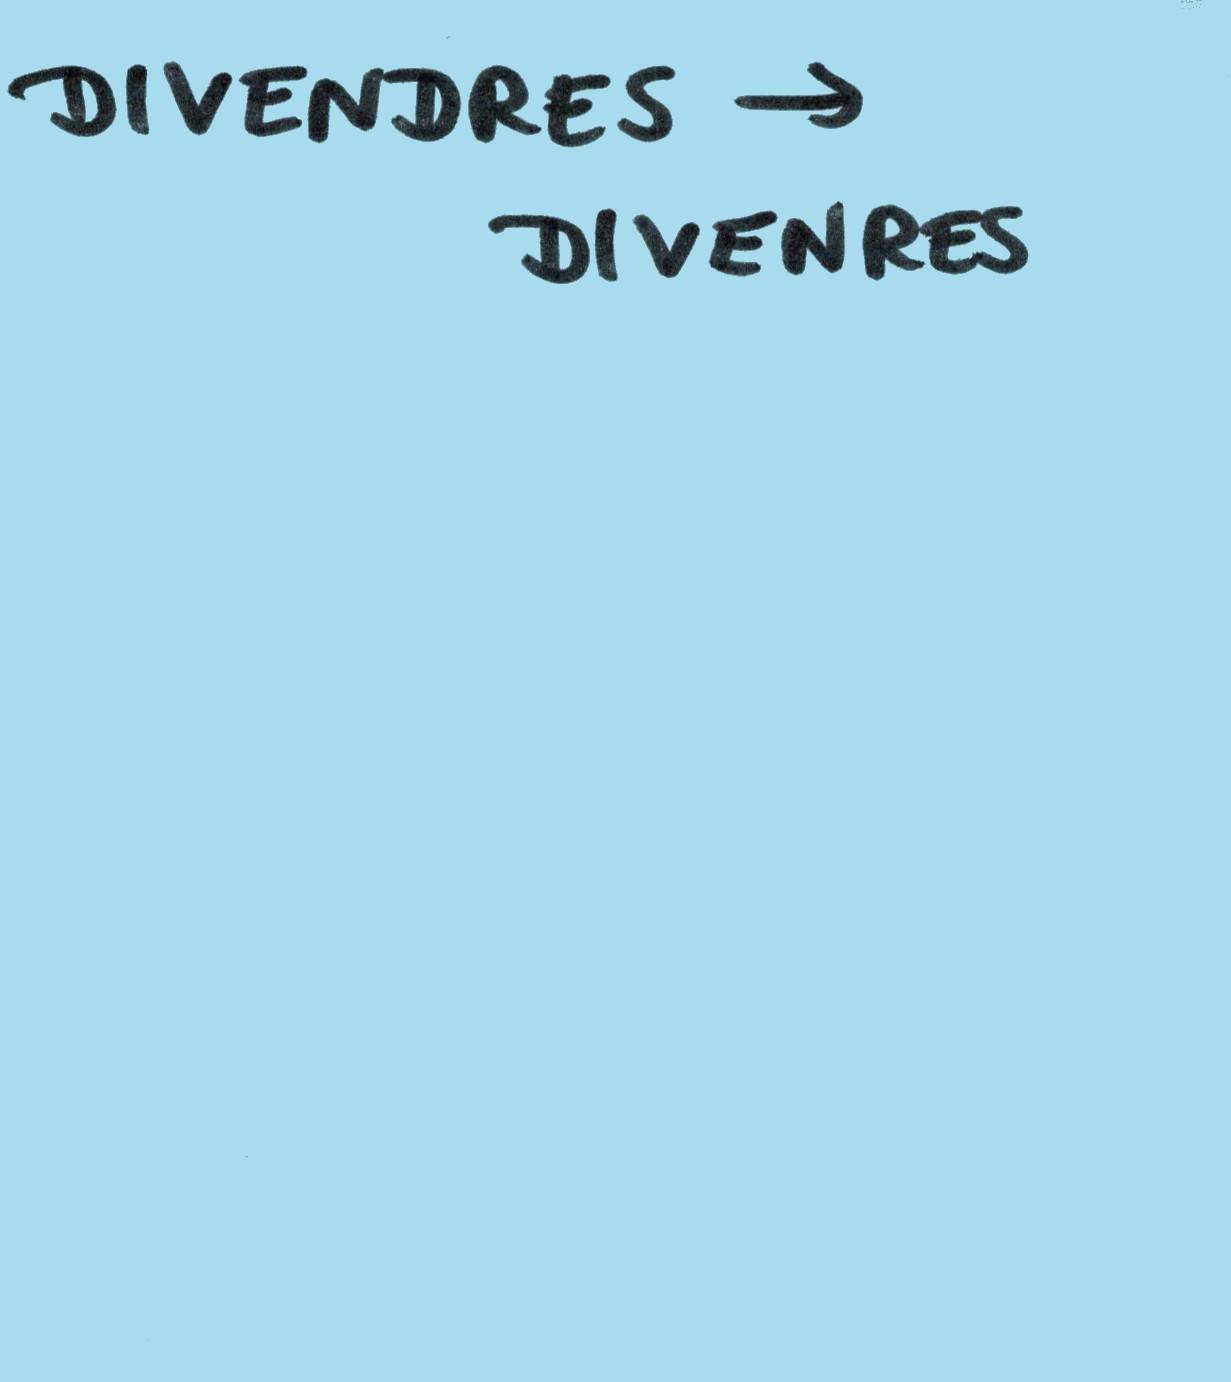 DIVENDRES →
DIVENRES